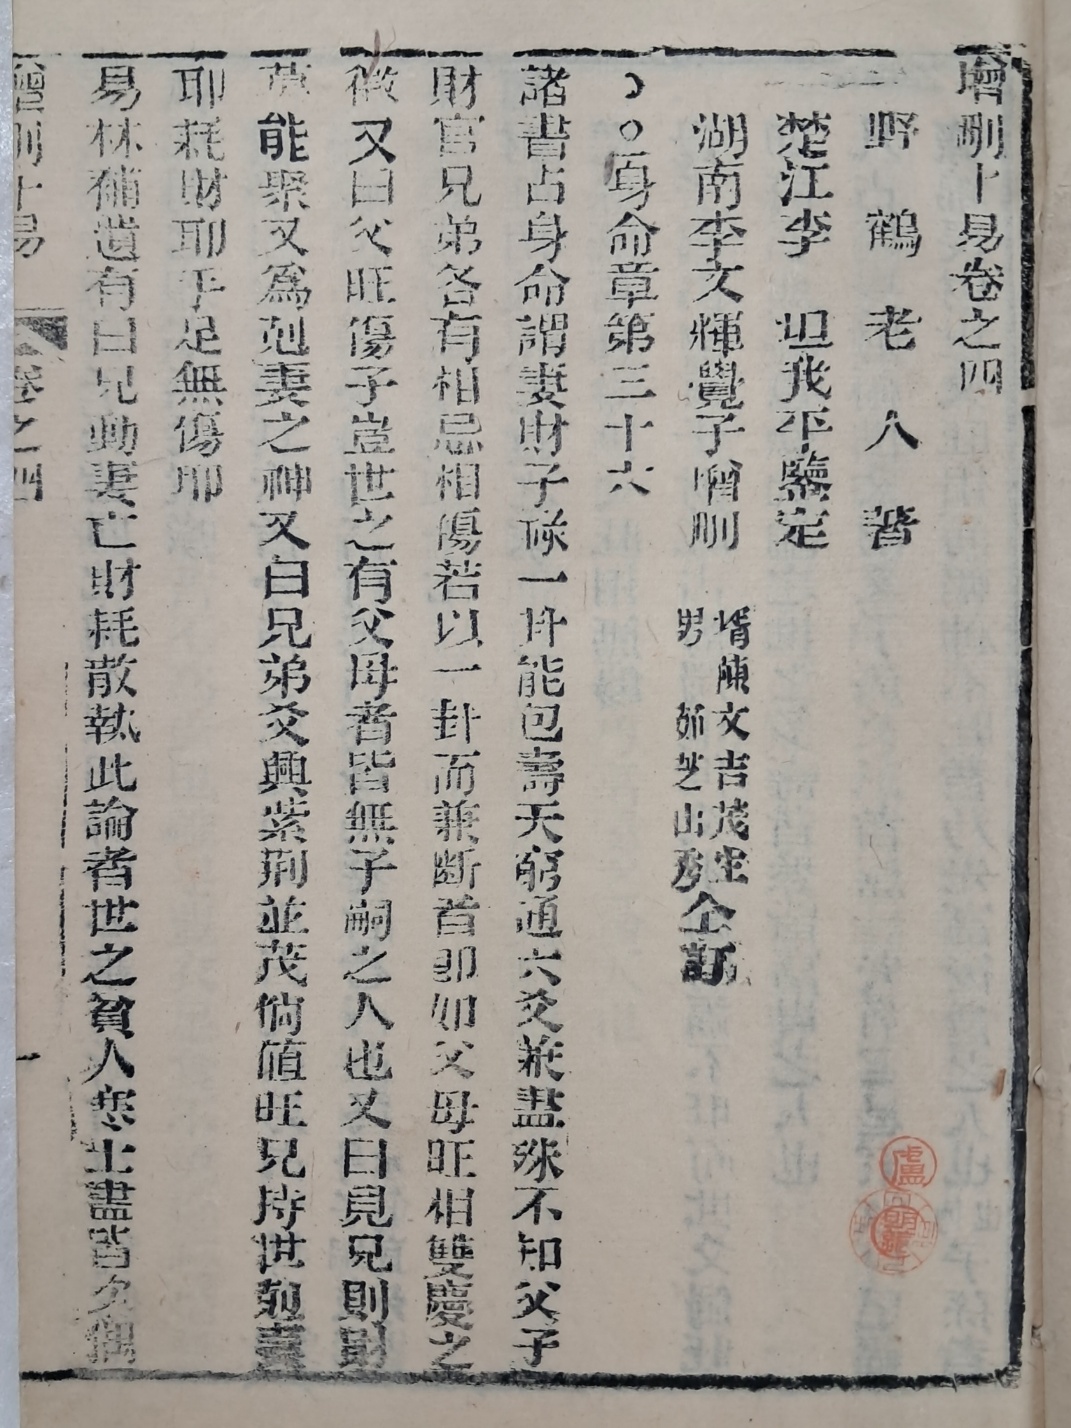 增刪卜易卷之四
野鶴老人著
楚江李坦我平鑒定
湖南李文輝覺子增刪
壻陳文吉茂生
男茹芝山秀
仝訂
身命章第三十六
諸書占身命謂妻財子祿一卦能包壽夭窮通六爻兼盡殊不知父子
財官兄弟各有相忌相傷若以一卦而兼斷首卽如父母旺相雙慶之
徵又曰父旺傷子豈世之有父母者皆無子嗣之人也又曰見兄則財
莫能聚又為剋妻之神又曰兄弟爻興紫荆並茂倘值旺兄持世剋妻
耶耗財耶手足無傷耶
易林補遺有曰兄動妻亡財耗散執此論者世之貧人寒士盡皆久鰥
增刪卜易
卷之四
一
盧